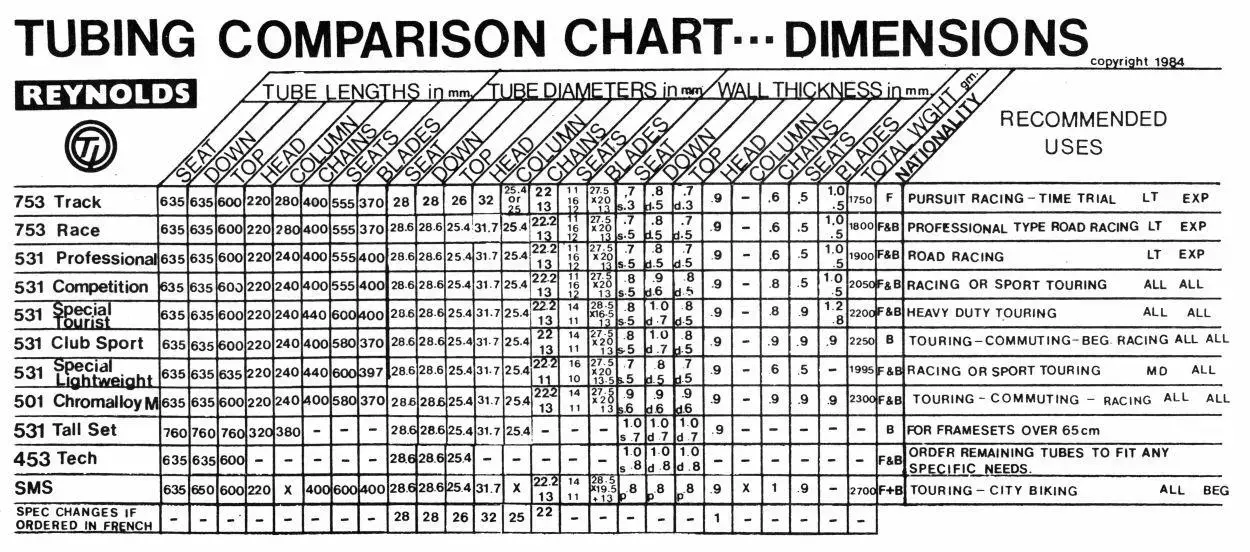 TUBING COMPARISON CHART... DIMENSIONS
copyright 1984
REYNOLDS
TUBE LENGTHS in mm. TUBE DIAMETERS in mm WALL THICKNESS in mm.
SEAT DOWN TOP HEAD COLUMN CHAINS SEATS BLADES SEAT DOWN TOP HEAD COLUMN CHAINS SEATS BLADES SEAT DOWN TOP HEAD COLUMN CHAINS SEATS BLADES TOTAL WGHT gm. NATIONALITY
RECOMMENDED
USES
753 Track 635 635 600 220 280 400 555 370 28 28 26 32 25.4 or 25 22 13 11 16 12 27.5 x20 13 .7 s.3 .8 d.5 .7 d.3 .9 - .6 .5 1.0 .5 1750 F PURSUIT RACING - TIME TRIAL LT EXP
753 Race 635 635 600 220 280 400 555 370 28.6 28.6 25.4 31.7 25.4 22.2 13 11 16 12 27.5 x20 13 .7 s.5 .8 d.5 .7 d.5 .9 - .6 .5 1.0 .5 1800 F&B PROFESSIONAL TYPE ROAD RACING LT EXP
531 Professional 635 635 600 220 240 400 555 400 28.6 28.6 25.4 31.7 25.4 22.2 13 11 16 12 27.5 x20 13 .7 s.5 .8 d.5 .7 d.5 .9 - .6 .5 1.0 .5 1900 F&B ROAD RACING LT EXP
531 Competition 635 635 603 220 240 400 600 400 28.6 28.6 25.4 31.7 25.4 22.2 13 11 16 12 27.5 x20 13 .8 s.5 .9 d.6 .8 d.5 .9 - .8 .5 1.0 .5 2050 F&B RACING OR SPORT TOURING ALL ALL
531 Special Tourist 635 635 600 220 240 440 600 400 28.6 28.6 25.4 31.7 25.4 22.2 13 14 11 28.5 x16.5 13 .8 s.5 1.0 d.7 .8 d.5 .9 - .8 .9 1.2 .8 2200 F&B HEAVY DUTY TOURING ALL ALL
531 Club Sport 635 635 600 220 240 400 580 370 28.6 28.6 25.4 31.7 25.4 22 13 14 11 27.5 x20 13 .8 s.5 1.0 d.7 .8 d.5 .9 - .9 .9 .9 2250 B TOURING - COMMUTING - BEG. RACING ALL ALL
531 Special Lightweight 635 635 635 220 240 440 600 397 28.6 28.6 25.4 31.7 25.4 22.2 11 16 10 27.5 x20 13.5 .7 s.5 .8 d.5 .7 d.5 .9 - .6 .5 - 1995 F&B RACING OR SPORT TOURING MD ALL
501 Chromalloy M 635 635 600 220 240 400 580 370 28.6 28.6 25.4 31.7 25.4 22.2 13 14 11 27.5 x20 13 .9 s.6 .9 d.6 .9 d.6 .9 - .9 .9 .9 2300 F&B TOURING - COMMUTING - RACING ALL ALL
531 Tall Set 760 760 760 320 380 - - - 28.6 28.6 25.4 31.7 25.4 - - - 1.0 s.7 1.0 d.7 1.0 d.7 .9 - - - - - B FOR FRAMESETS OVER 65cm
453 Tech 635 635 600 - - - - - 28.6 28.6 25.4 - - - - - 1.0 s.8 1.0 d.8 1.0 d.8 - - - - - - F&B ORDER REMAINING TUBES TO FIT ANY
SPECIFIC NEEDS.
SMS 635 650 600 220 X 400 600 400 28.6 28.6 25.4 31.7 X 22.2 13 14 11 28.5 x19.5 +13 .8 p .8 p .8 p .9 X 1 .9 - 2700 F+B TOURING - CITY BIKING ALL BEG
SPEC CHANGES IF
ORDERED IN FRENCH - - - - - - - - 28 28 26 32 25 22 - - - - - 1 - - - - -